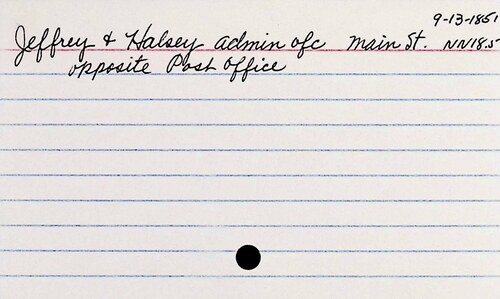 9-13-1851
Jeffrey & Halsey admin ofc main St. NN18.5
opposite Post office